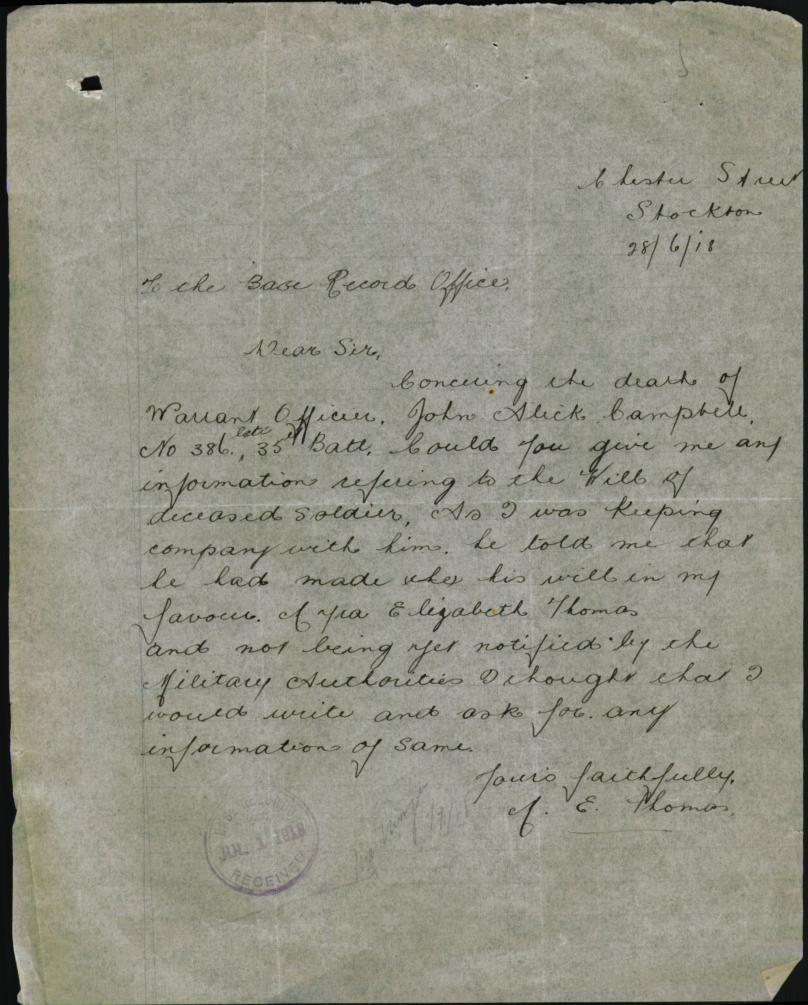 Chester Street
Stockton
28/6/18
To the Base Record Office.
Dear Sir,
Concering the death of
Warrant Officier, John Alick Campbell,
No 386, late 35th Batt. Could you give me any
information refering to the Will of
deceased soldier, As I was keeping
company with him. he told me that
he had made his will in my
favour. Myra Elizabeth Thomas
and not being yet notified by the
Military Authorities I thought that I
would write and ask for any
information of same.
Yours faithfully,
M. E. Thomas.
JUL 1 1918
RECEIVED